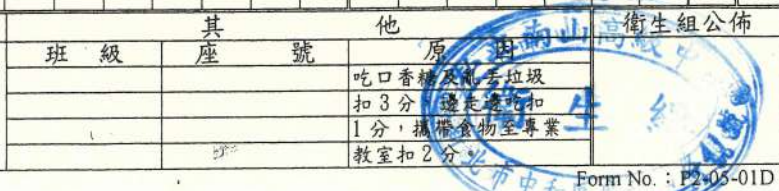 其 他
衛生組公佈
班 級 座 號 原 因
吃口香糖及亂丟垃圾
扣3分，邊走邊吃扣
1分，攜帶食物至專業
教室扣2分。
南山高級中
衛生組
北市中和
Form No.：P2-05-01D